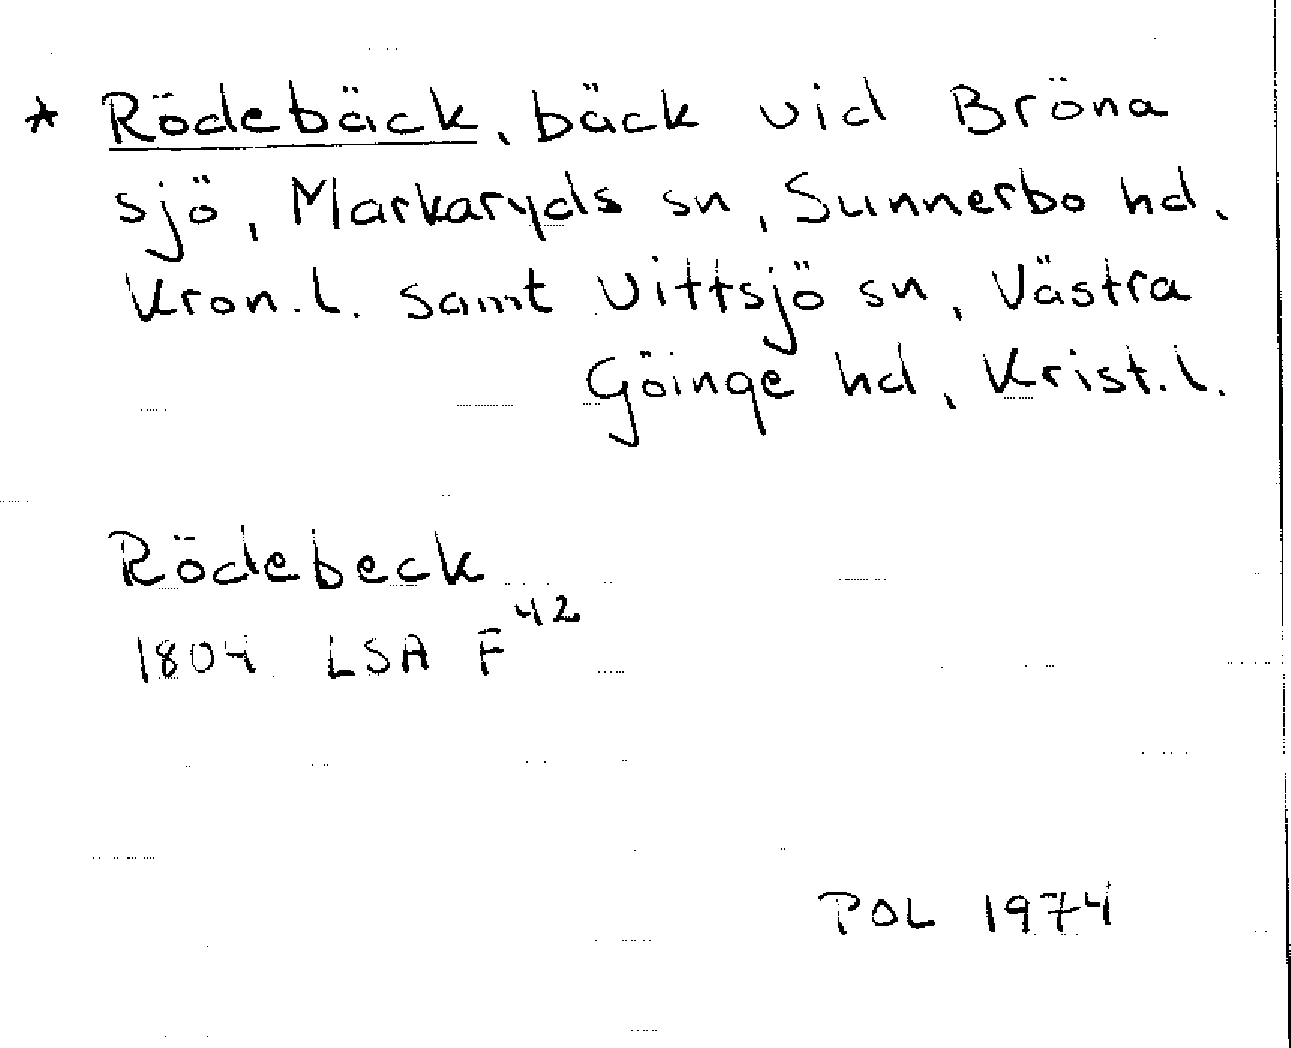 * Rödebäck, bäck vid Bröna
sjö, Markaryds sn, Sunnerbo hd.
Kron. l. samt Vittsjö sn, Västra
Göinge hd, Krist. l.
Rödebeck
1804 LSA F 42
POL 1974